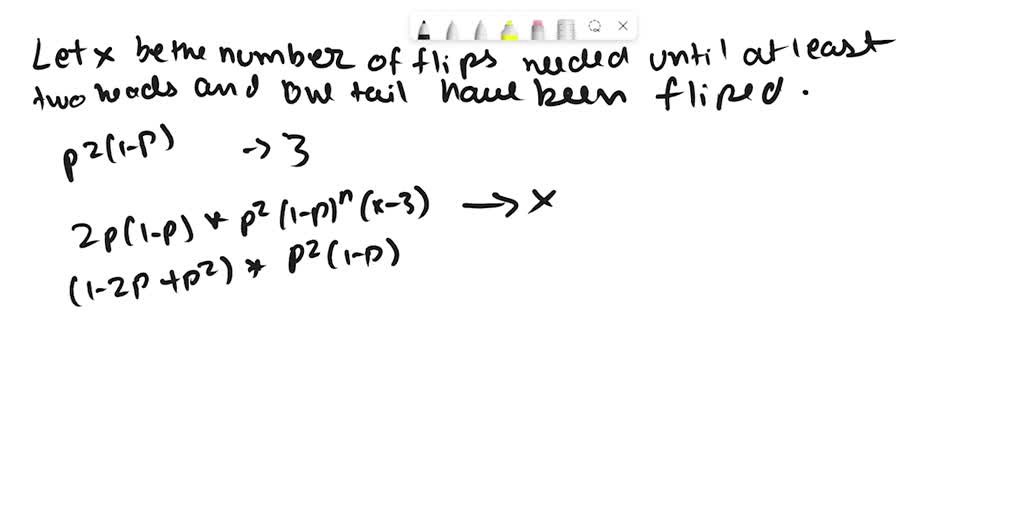 Let x be the number of flips needed until at least
two heads and one tail have been fliped.
p²(1-p) -> 3
2p(1-p) * p²(1-p)ⁿ(x-3) → x
(1-2p+p²) * p²(1-p)